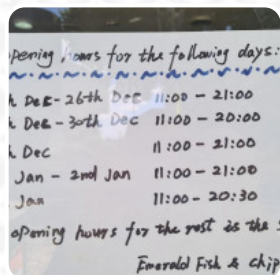 opening hours for the following days:
h Dec - 26th Dec 11:00 - 21:00
h Dec - 30th Dec 11:00 - 20:00
h Dec 11:00 - 21:00
Jan - 2nd Jan 11:00 - 21:00
Jan 11:00 - 20:30
opening hours for the rest is the
Emerald Fish & chip